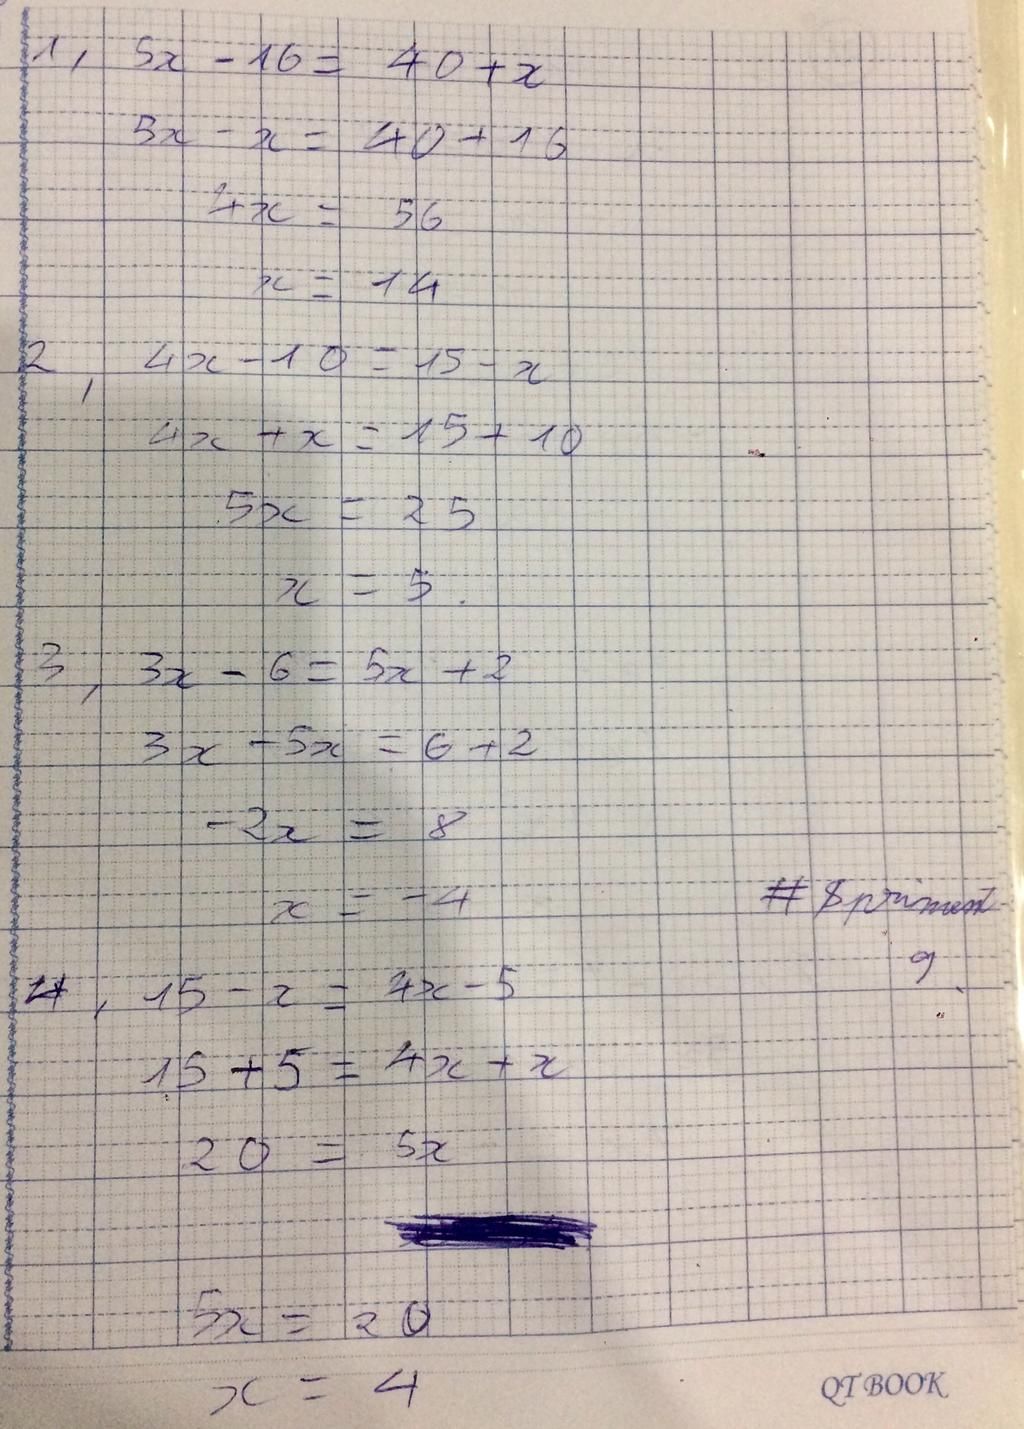 1, 5x - 16 = 40 + x
5x - x = 40 + 16
4x = 56
x = 14
2, 4x - 10 = 15 - x
4x + x = 15 + 10
5x = 25
x = 5.
3, 3x - 6 = 5x + 2
3x - 5x = 6 + 2
-2x = 8
x = -4
#
9
4, 15 - x = 4x - 5
15 + 5 = 4x + x
20 = 5x
5x = 20
x = 4
QT BOOK